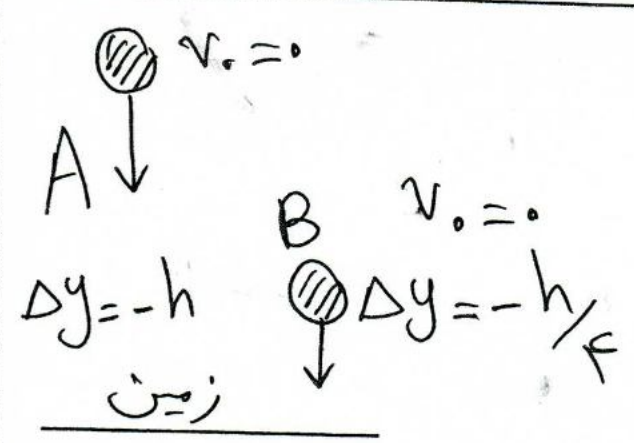 V₀ = ۰
A
B
V₀ = ۰
Δy = -h
Δy = -h/۴
زمین